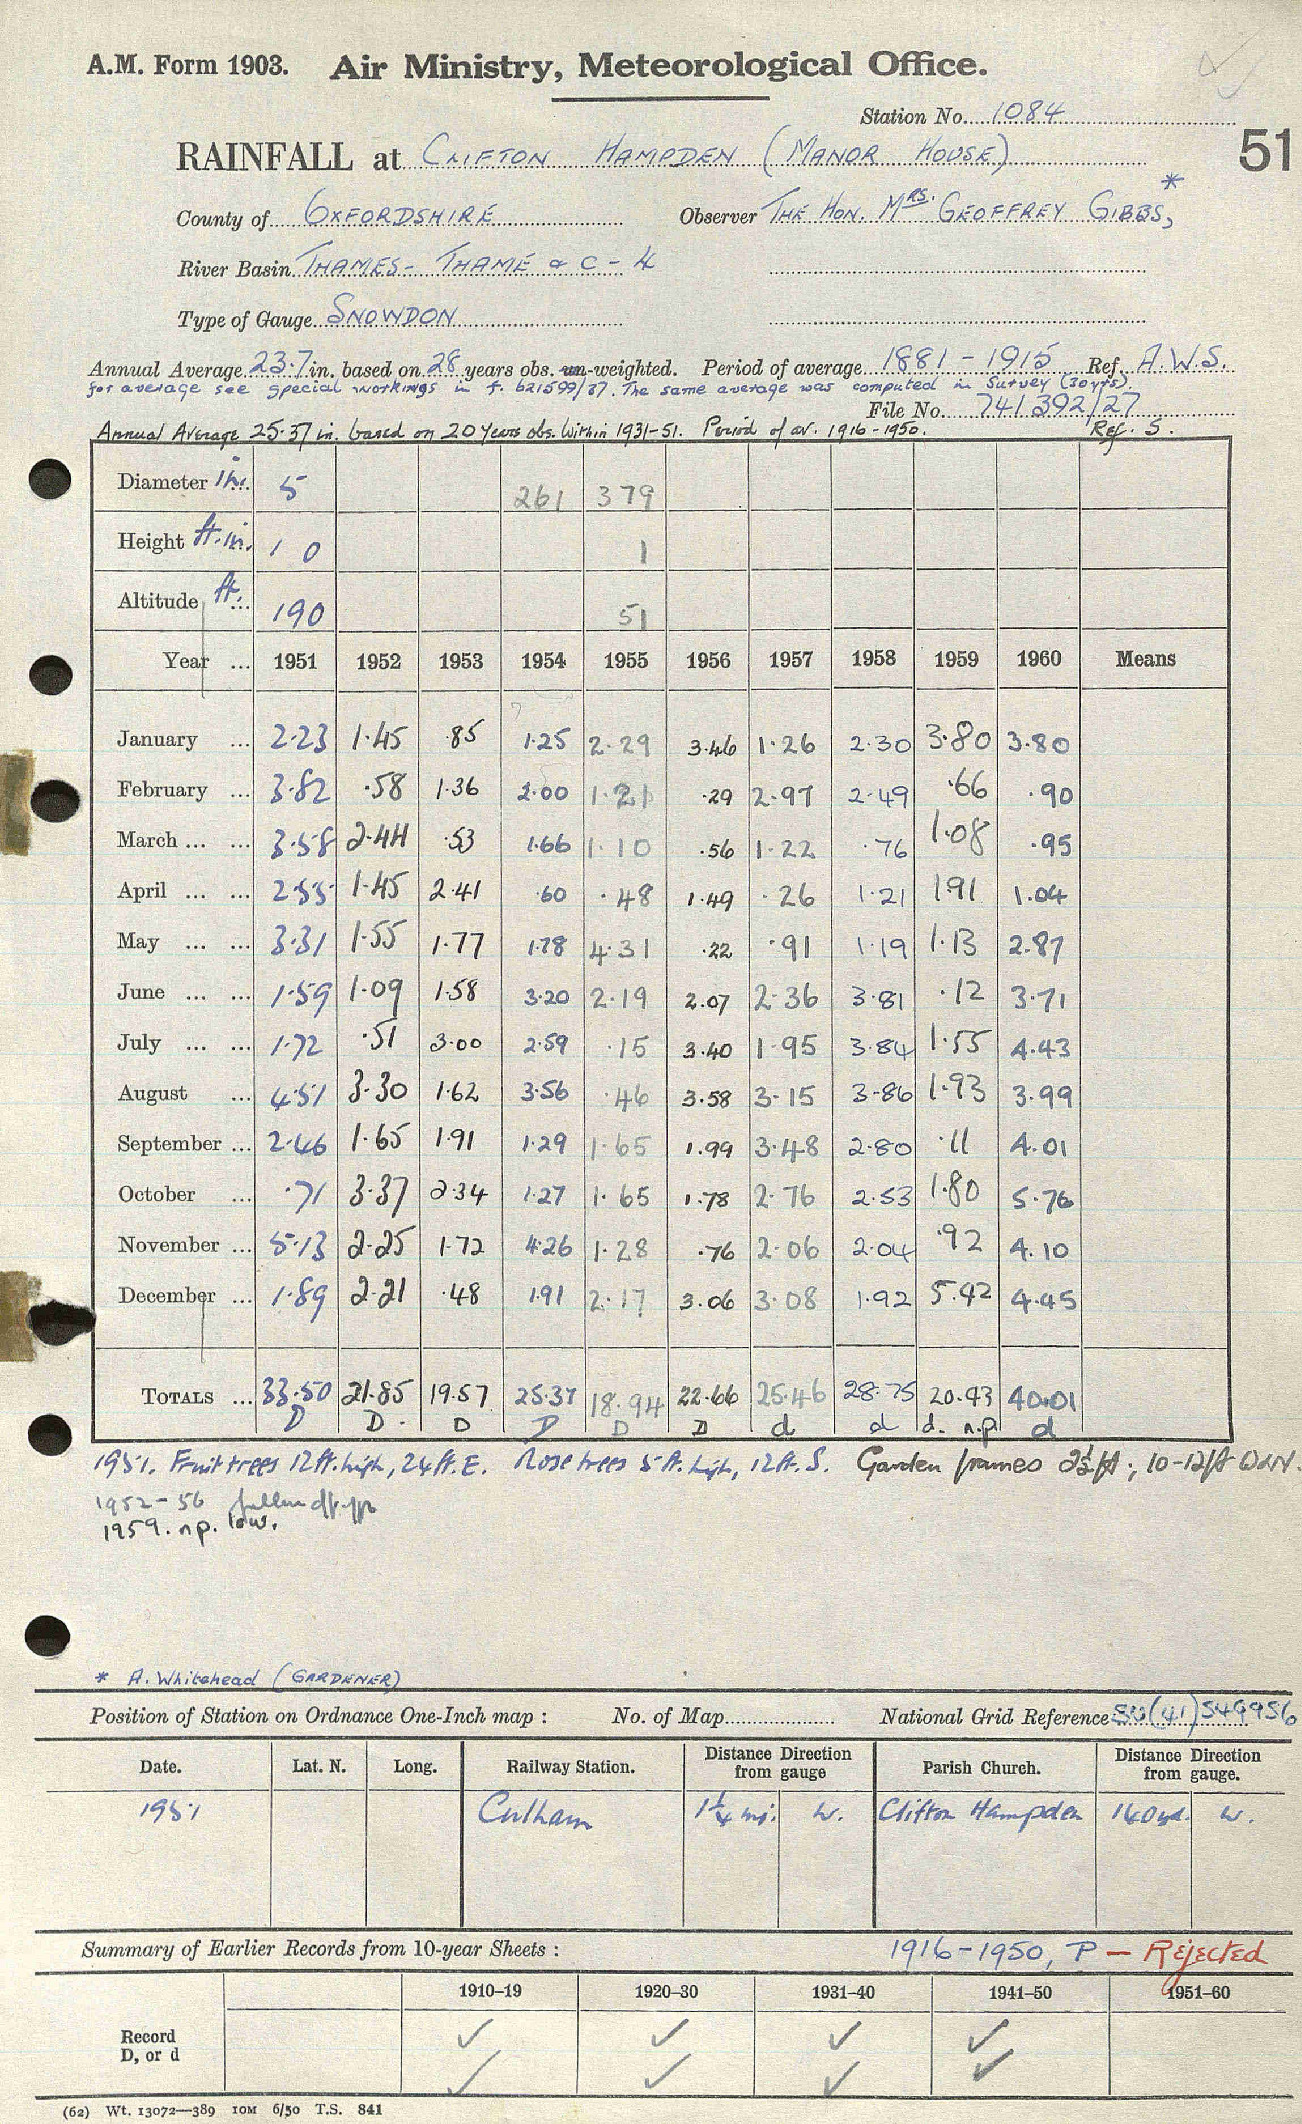 A.M. Form 1903. Air Ministry, Meteorological Office.
Station No. 1084
51
RAINFALL at CLIFTON HAMPDEN (MANOR HOUSE)
County of OXFORDSHIRE Observer THE HON. MRS. GEOFFREY GIBBS, *
River Basin THAMES - THAME & C - 4
Type of Gauge SNOWDON
Annual Average 23.7 in. based on 28 years obs. un-weighted. Period of average 1881 - 1915 Ref. A.W.S.
for average see special workings in f. 621599/37. The same average was computed in Survey (30 yrs).
File No. 741392/27
Annual Average 25.37 in. based on 20 Years obs. Within 1931-51. Period of av. 1916-1950. Ref. S.
Diameter in. 5 261 379
Height ft. in. 1 0 1
Altitude ft. 190 51
Year ... 1951 1952 1953 1954 1955 1956 1957 1958 1959 1960 Means
January ... 2.23 1.45 .85 1.25 2.29 3.46 1.26 2.30 3.80 3.80
February ... 3.82 .58 1.36 2.00 1.21 .29 2.97 2.49 .66 .90
March ... ... 3.58 2.44 .53 1.66 1.10 .56 1.22 .76 1.08 .95
April ... ... 2.55 1.45 2.41 .60 .48 1.49 .26 1.21 1.91 1.04
May ... ... 3.31 1.55 1.77 1.78 4.31 .22 .91 1.19 1.13 2.87
June ... ... 1.59 1.09 1.58 3.20 2.19 2.07 2.36 3.81 .12 3.71
July ... ... 1.72 .51 3.00 2.59 .15 3.40 1.95 3.84 1.55 4.43
August ... 4.51 3.30 1.62 3.56 .46 3.58 3.15 3.86 1.93 3.99
September ... 2.46 1.65 1.91 1.29 1.65 1.99 3.48 2.80 .11 4.01
October ... .71 3.37 2.34 1.27 1.65 1.78 2.76 2.53 1.80 5.76
November ... 5.13 2.25 1.72 4.26 1.28 .76 2.06 2.04 .92 4.10
December ... 1.89 2.21 .48 1.91 2.17 3.06 3.08 1.92 5.42 4.45
TOTALS ... 33.50 21.85 19.57 25.37 18.94 22.66 25.46 28.75 20.43 40.01
D D. D D D D d d d. n.p. d
1951. Fruit trees 12ft. high, 24ft. E. Rose trees 5ft. high, 12ft. S. Garden frames 2½ft, 10-12ft W & N.
1952-56
1959. n.p. low.
* A. Whitehead (GARDENER)
Position of Station on Ordnance One-Inch map : No. of Map National Grid Reference SU(41)549956
Date. Lat. N. Long. Railway Station. Distance from gauge Direction Parish Church. Distance from gauge. Direction
1951 Culham 1¼ mi. W. Clifton Hampden 140 yd. W.
Summary of Earlier Records from 10-year Sheets : 1916-1950, P - Rejected
1910-19 1920-30 1931-40 1941-50 1951-60
Record ✓ ✓ ✓ ✓
D, or d ✓ ✓ ✓ ✓
(62) Wt. 13072—389 10M 6/50 T.S. 841